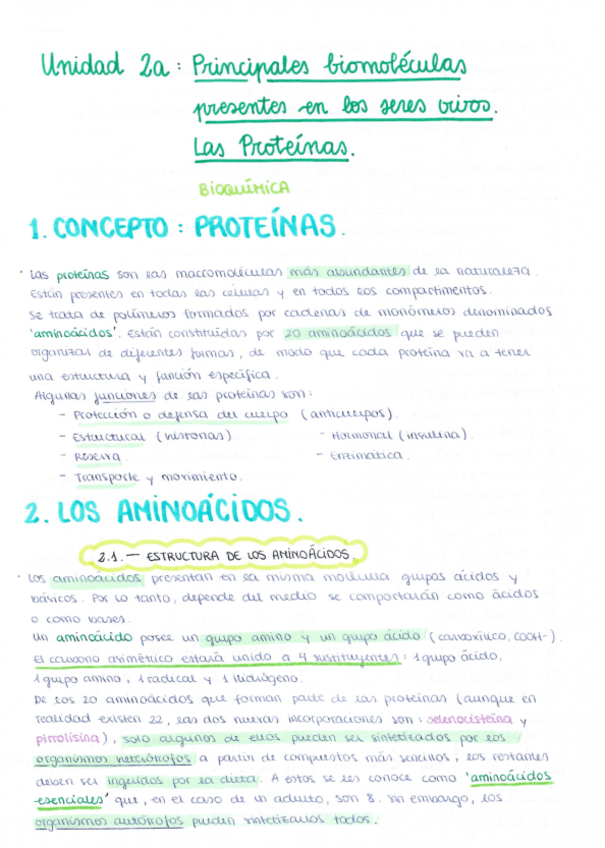 Unidad 2a: Principales biomoléculas
presentes en los seres vivos.
Las Proteínas.
BIOQUÍMICA
1. CONCEPTO: PROTEÍNAS.
· Las proteínas son las macromoléculas más abundantes de la naturaleza.
Están presentes en todas las células y en todos los compartimentos.
Se trata de polímeros formados por cadenas de monómeros denominados
'aminoácidos'. Están constituidas por 20 aminoácidos que se pueden
organizar de diferentes formas, de modo que cada proteína va a tener
una estructura y función específica.
Algunas funciones de las proteínas son:
- Protección o defensa del cuerpo (anticuerpos).
- Estructural (histonas)
- Hormonal (insulina).
- Reserva
- Enzimática.
- Transporte y movimiento.
2. LOS AMINOÁCIDOS.
2.1.- ESTRUCTURA DE LOS AMINOÁCIDOS.
· Los aminoácidos presentan en la misma molécula grupos ácidos y
básicos. Por lo tanto, depende del medio se comportarán como ácidos
o como bases.
Un aminoácido posee un grupo amino y un grupo ácido (carboxílico, COOH-).
El carbono asimétrico estará unido a 4 sustituyentes: 1 grupo ácido,
1 grupo amino, 1 radical y 1 Hidrógeno.
De los 20 aminoácidos que forman parte de las proteínas (aunque en
realidad existen 22, las dos nuevas incorporaciones son: selenocisteína y
pirrolisina), solo algunos de ellos pueden ser sintetizados por los
organismos heterótrofos a partir de compuestos más sencillos; los restantes
deben ser ingeridos por la dieta. A estos se les conoce como 'aminoácidos
esenciales' que, en el caso de un adulto, son 8. Sin embargo, los
organismos autótrofos pueden sintetizarlos todos.